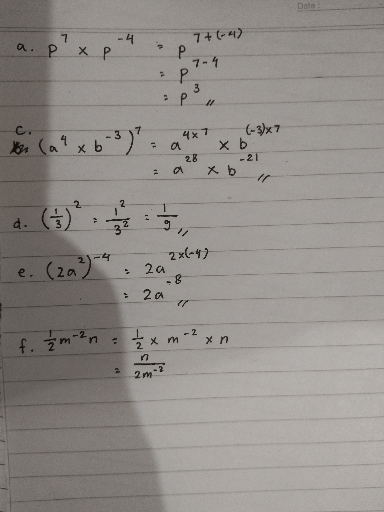 Date :
a. p⁷ × p⁻⁴ = p⁷⁺⁽⁻⁴⁾
= p⁷⁻⁴
= p³ //
c.
(a⁴ × b⁻³)⁷ = a⁴ˣ⁷ × b⁽⁻³⁾ˣ⁷
= a²⁸ × b⁻²¹ //
d. (1/3)² = 1²/3² = 1/9 //
e. (2a²)⁻⁴ = 2a²ˣ⁽⁻⁴⁾
= 2a⁻⁸ //
f. 1/2 m⁻²n = 1/2 × m⁻² × n
= n/2m⁻²